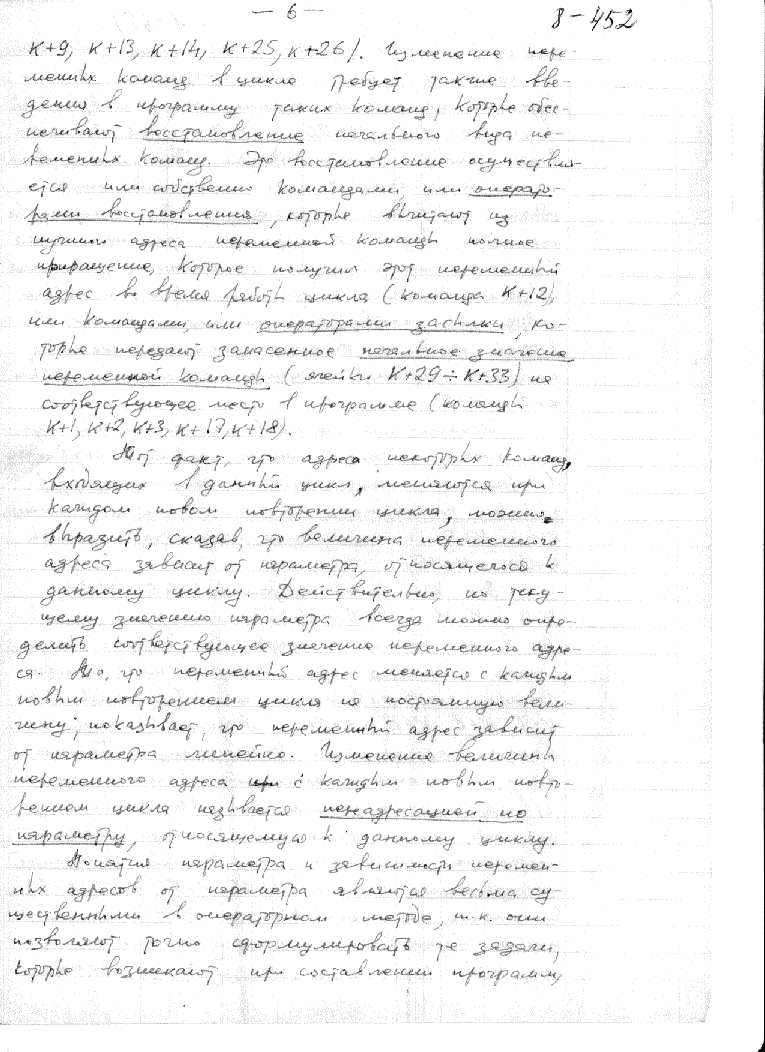 — 6 —
8-452
K+9, K+13, K+14, K+25, K+26/. Изменение пере-
менных команд в цикле требует также вве-
дения в программу таких команд, которые обес-
печивают восстановление начального вида пе-
ременных команд. Это восстановление осуществля-
ется или собственно командами, или операто-
рами восстановления, которые вычитают из
нужного адреса переменной команды полное
приращение, которое получил этот переменный
адрес во время работы цикла (команда K+12),
или командами, или операторами засылки, ко-
торые передают запасенное начальное значение
переменной команды (ячейки K+29÷K+33) на
соответствующее место в программе (команды
K+1, K+2, K+3, K+17, K+18).
Тот факт, что адреса некоторых команд,
входящих в данный цикл, меняются при
каждом новом повторении цикла, можно
выразить, сказав, что величина переменного
адреса зависит от параметра, относящегося к
данному циклу. Действительно, по теку-
щему значению параметра всегда можно опре-
делить соответствующее значение переменного адре-
са. То, что переменный адрес меняется с каждым
новым повторением цикла на постоянную вели-
чину, показывает, что переменный адрес зависит
от параметра линейно. Изменение величины
переменного адреса с каждым новым повто-
рением цикла называется переадресацией по
параметру, относящемуся к данному циклу.
Понятия параметра и зависимости перемен-
ных адресов от параметра являются весьма су-
щественными в операторном методе, т.к. они
позволяют точно сформулировать те задачи,
которые возникают при составлении программ,